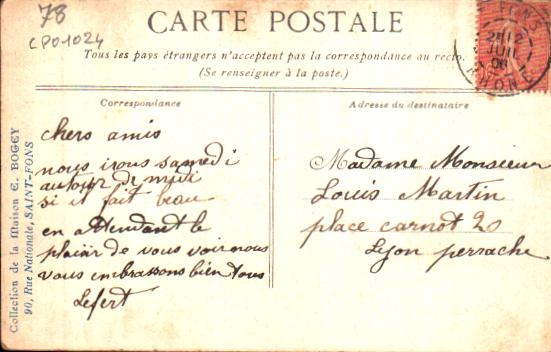 78
CPO1024
CARTE POSTALE
Tous les pays étrangers n'acceptent pas la correspondance au recto.
(Se renseigner à la poste.)
FONS
RHONE
Correspondance
Adresse du destinataire
chers amis
nous irons samedi
autour de midi
si il fait beau
en attendant le
plaisir de vous voir nous
vous embrassons bien tous
Lefert
Madame Monsieur
Louis Martin
place carnot 20
Lyon perrache
Collection de la Maison E. BOGEY
90, Rue Nationale, SAINT-FONS